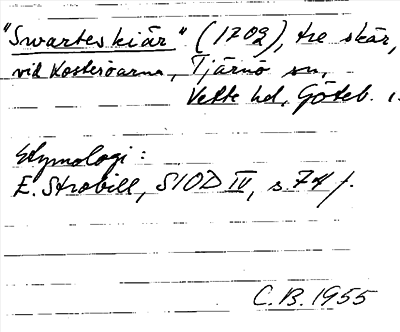 "Swartes kiär" (1702), tre skär,
vid Kosteröarna, Tjärnö sn,
Vette hd, Göteb.
Etymologi:
E. Strobill, SIOD IV, s. 74 f.
C.B. 1955